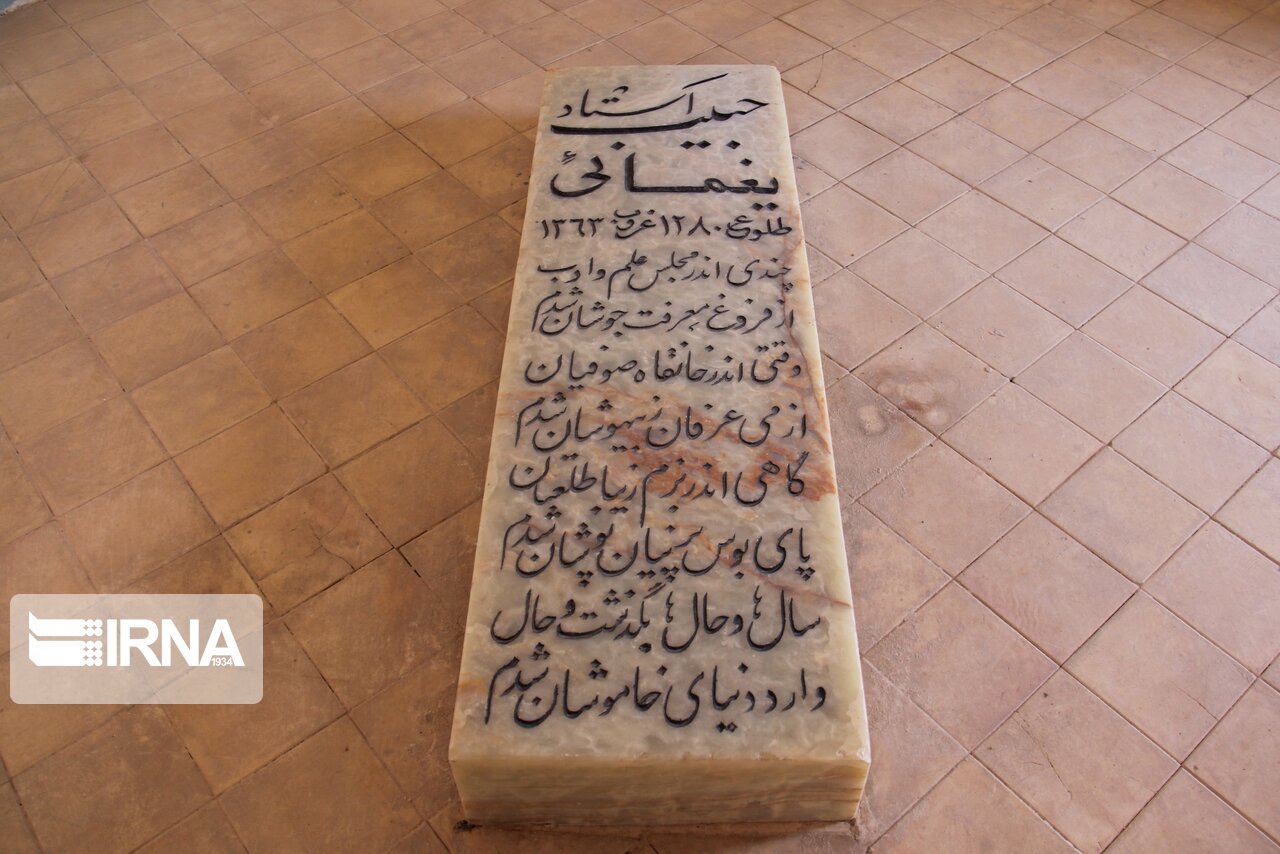 استاد حبیب
یغمائی
طلوع ۱۲۸۰ غروب ۱۳۶۳
چندی اندر مجلس علم و ادب
از فروغ معرفت جوشان شدم
وقتی اندر خانقاه صوفیان
از می عرفان ز بیهوشان شدم
گاهی اندر بزم زیبا طلعتان
پای بوس پرنیان پوشان شدم
سال ها و حال ها بگذشت و حال
وارد دنیای خاموشان شدم
IRNA
1934